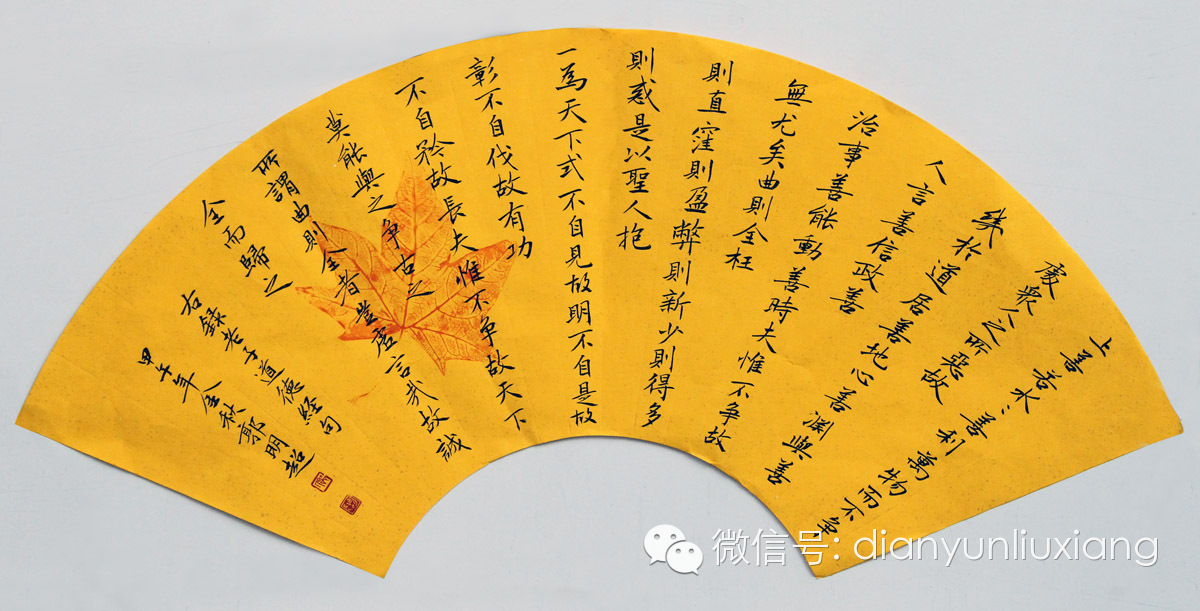 上善若水〻善利萬物而不争
處衆人之所惡故
幾於道居善地心善淵與善
人言善信政善
治事善能動善時夫惟不争故
無尤矣曲則全枉
則直窪則盈弊則新少則得多
則惑是以聖人抱
一為天下式不自見故明不自是故
彰不自伐故有功
不自矜故長夫惟不争故天下
莫能與之争古之
所謂曲則全者豈虚言哉故誠
全而歸之
右録老子道德經句
甲午年金秋郭明超
微信号: dianyunliuxiang